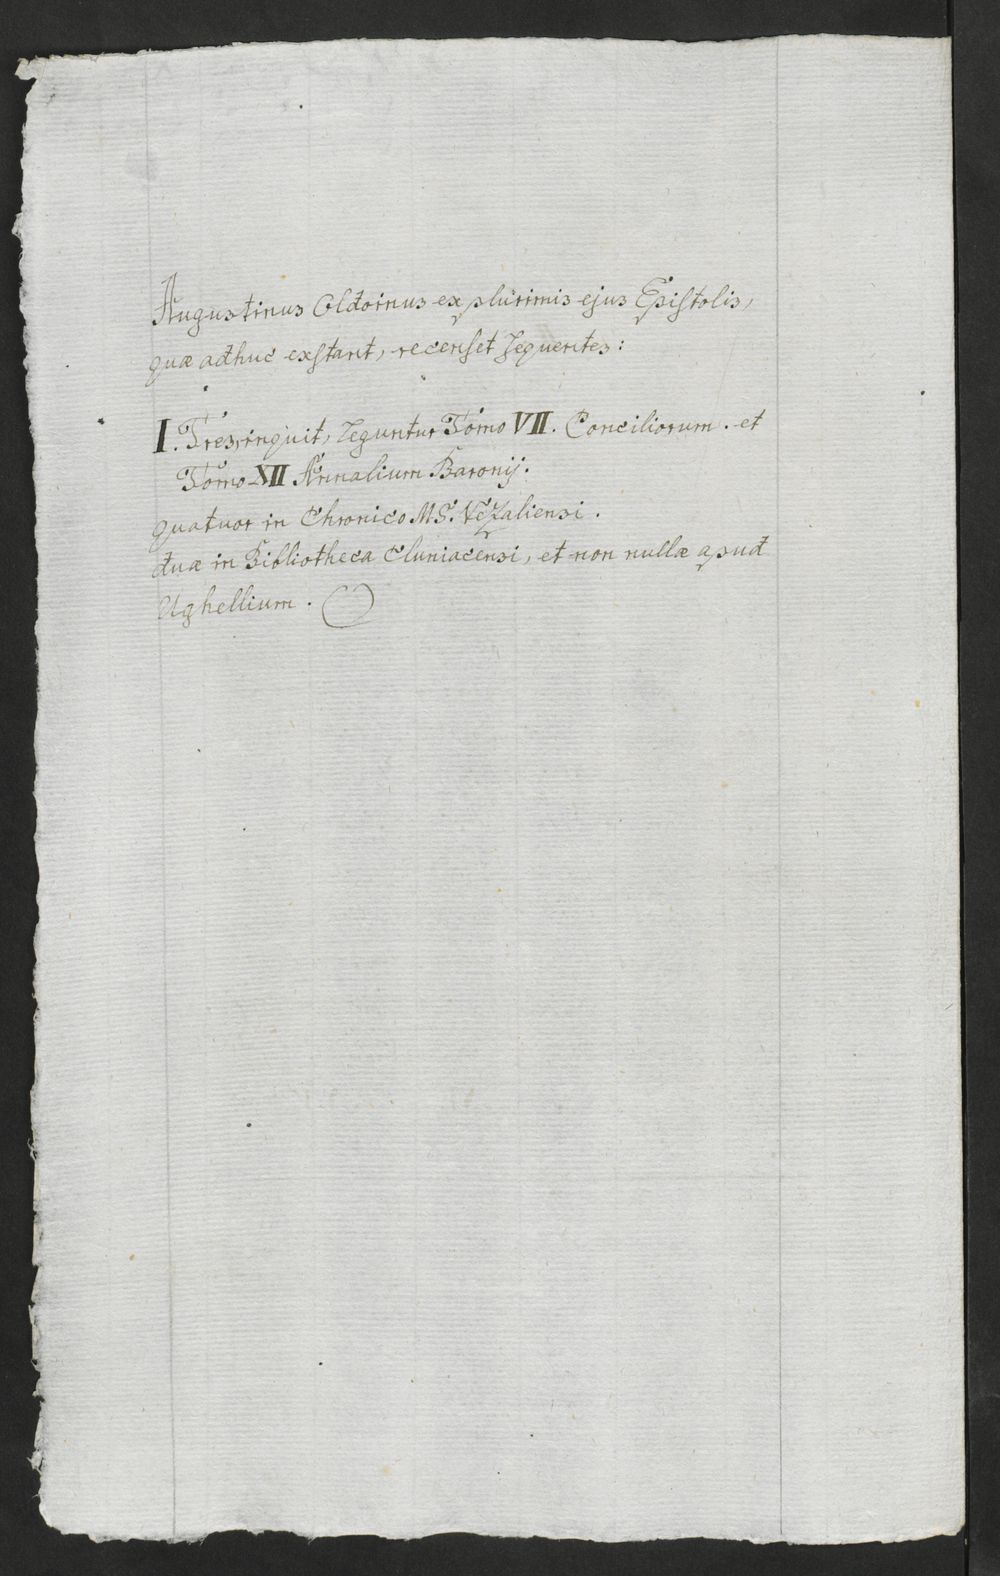 Augustinus Oldoinus ex plurimis ejus Epistolis,
quæ adhuc exstant, recenset sequentes:
I. Tres, inquit, leguntur Tomo VII. Conciliorum. et
Tomo XII Annalium Baronij.
quatuor in Chronico MS. Vezaliensi.
duæ in Bibliotheca Cluniacensi, et non nullæ apud
Ughellium.